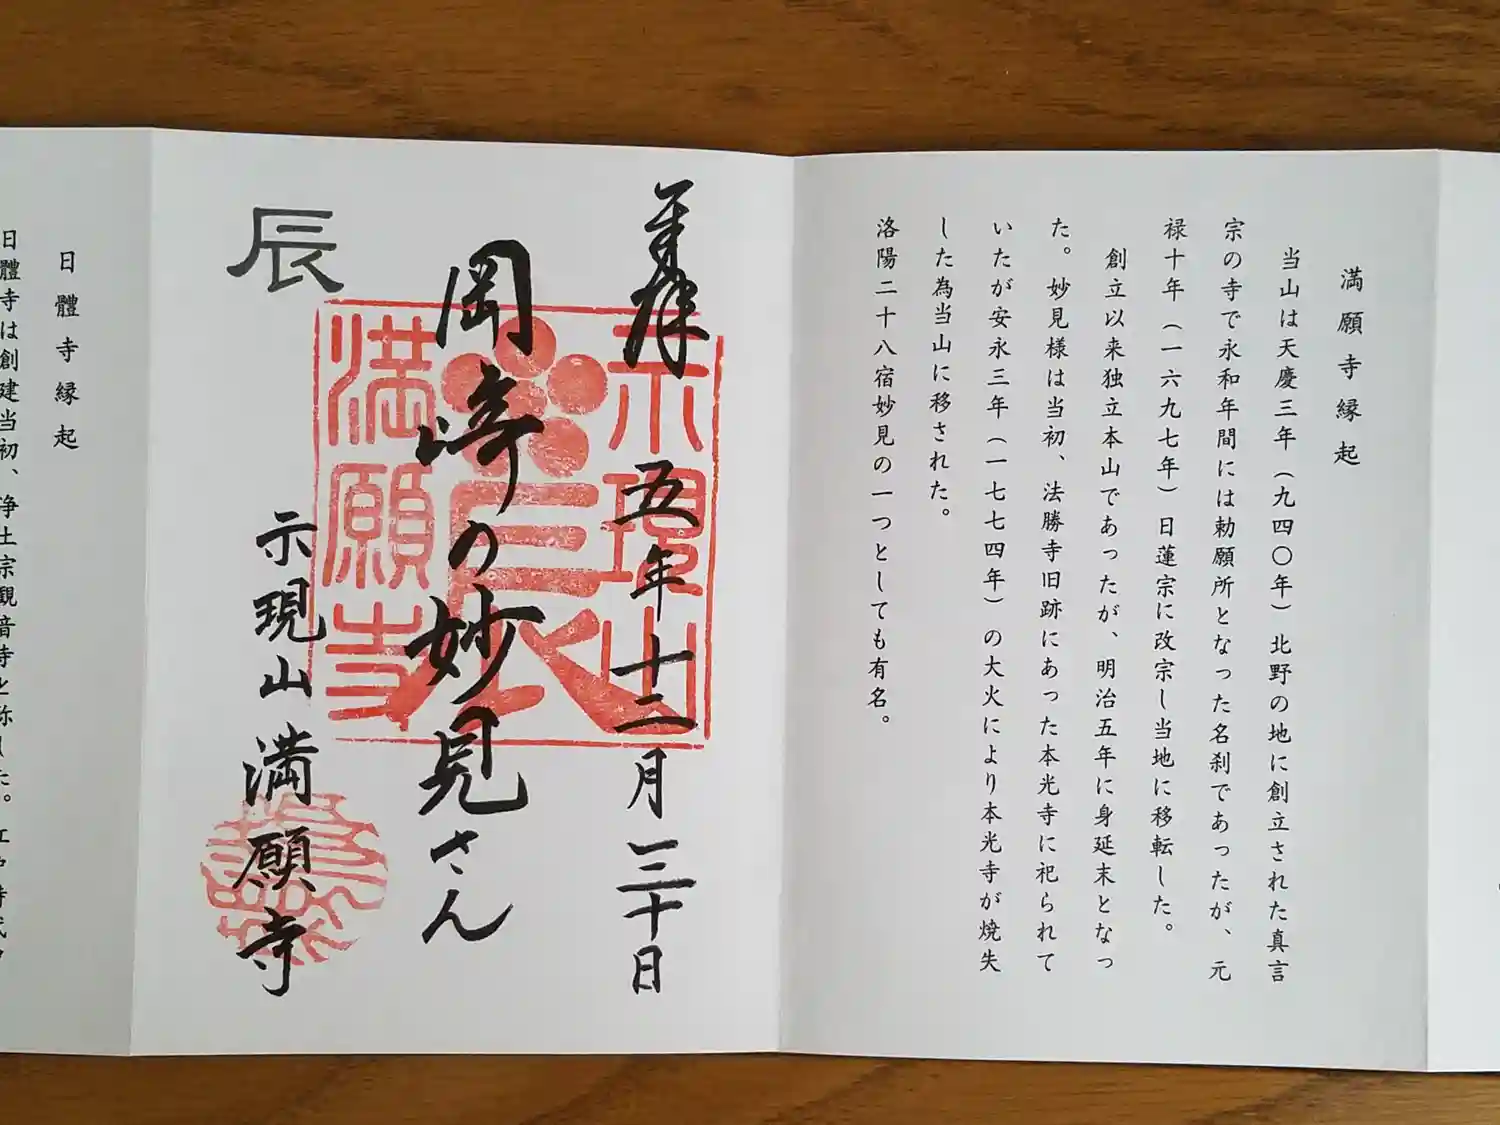 満願寺縁起
当山は天慶三年（九四〇年）北野の地に創立された真言
宗の寺で永和年間には勅願所となった名刹であったが、元
禄十年（一六九七年）日蓮宗に改宗し当地に移転した。
創立以来独立本山であったが、明治五年に身延末となっ
た。妙見様は当初、法勝寺旧跡にあった本光寺に祀られて
いたが安永三年（一七七四年）の大火により本光寺が焼失
した為当山に移された。
洛陽二十八宿妙見の一つとしても有名。
奉拝 五年十二月三十日
示現山
満願寺
岡崎の妙見さん
辰
示現山 満願寺
日體寺縁起
日體寺は創建当初、浄土宗観音寺と称した。江戸時代中